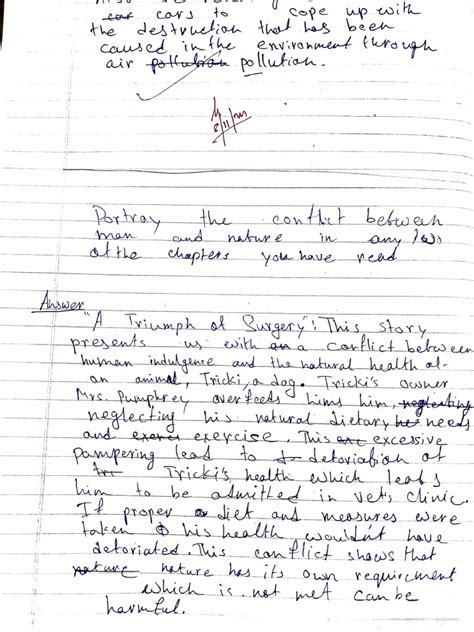 cars to cope up with
the destruction that has been
caused in the environment through
air pollution pollution.
Portray the conflict between
man and nature in any two
of the chapters you have read
Answer
"A Triumph of Surgery": This story
presents us with a conflict between
human indulgence and the natural health of
an animal, Tricki, a dog. Tricki's owner
Mrs. Pumphrey overfeeds hims him, neglecting
neglecting his natural dietary needs
and exercise. This excessive
pampering lead to detoriation of
Tricki's health which leads
him to be admitted in vet's clinic.
If proper diet and measures were
taken his health wouldnt have
detoriated. This conflict shows that
nature nature has its own requirement
which is not met can be
harmful.